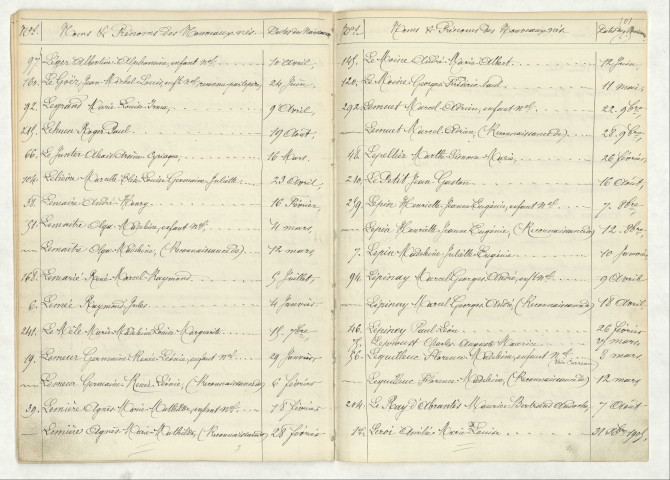 Nos. Noms & Prénoms des Nouveaux-nés. Dates des Naissances
97 Léger Albertine Alphonsine, enfant nel. 10 Avril,
160. Le Goër, Jean Michel Louis, enft nel. reconnu par le père, 24 Juin,
92. Legrand Marie Louise Irma, 9 Avril,
215. Lehuen Roger Paul 19 Août,
66. Le Junter 16 Mars.
104. Lelièvre Marcelle Elie Louise Germaine Juliette 23 Avril,
38. Lemaire André Henry 16 Février,
51. Lemaître Olga Madeleine, enfant nel. 4 mars,
— Lemaître Olga Madeleine, (Reconnaissance de) 12 mars,
168. Lemarié René Marcel Raymond 5 Juillet,
6. Lemée Raymond Jules 4 Janvier
241. Le Mêle Marie Madeleine Louise Marguerite 15. 7bre,
19. Lemeur Germaine Renée Léonie, enfant nel. 29 Janvier,
— Lemeur Germaine Renée Léonie, (Reconnaissance de) 6 Février
39. Lemière Agnès Marie Mathilde, enfant nel. 18 Février
— Lemière Agnès Marie Mathilde, (Reconnaissance de) 28 Février
101
Nos. Noms & Prénoms des Nouveaux-nés. Dates des Naissances
145. Le Moine André Marie Albert 12 Juin,
120. Le Moine Georges Frédéric Paul 11 mai,
292. Lemuet Marcel Adrien, enfant nel. 22. 9bre,
— Lemuet Marcel Adrien, (Reconnaissance de) 28. 9bre,
48. Lepeltier Marthe Simonne Marie, 26 Février
210. Le Petit Jean Gaston 16 Août,
259. Lepin Henriette Jeanne Eugénie, enfant nel. 7. 8bre,
— Lepin Henriette Jeanne Eugénie, (Reconnaissance de) 12. 8bre,
7. Lepin Madeleine Juliette Eugénie 10 Janvier
94. Lépinay Marcel Georges André, enft nel. 9 Avril
— Lépinay Marcel Georges André (Reconnaissance de) 18 Avril
46. Lépinay Paul Léon 26 Février
75. Charles Auguste Maurice 25 mars
56. Lequilleuc Florence Madeleine, enfant Nel. 8 mars,
— Lequilleuc Florence Madeleine, (Reconnaissance de) 12 mars
204. Le Ray d'Abrantès Maurice Bertrand Andoche, 7 Août
Leroi Marie Louise 31 Xbre 1905,